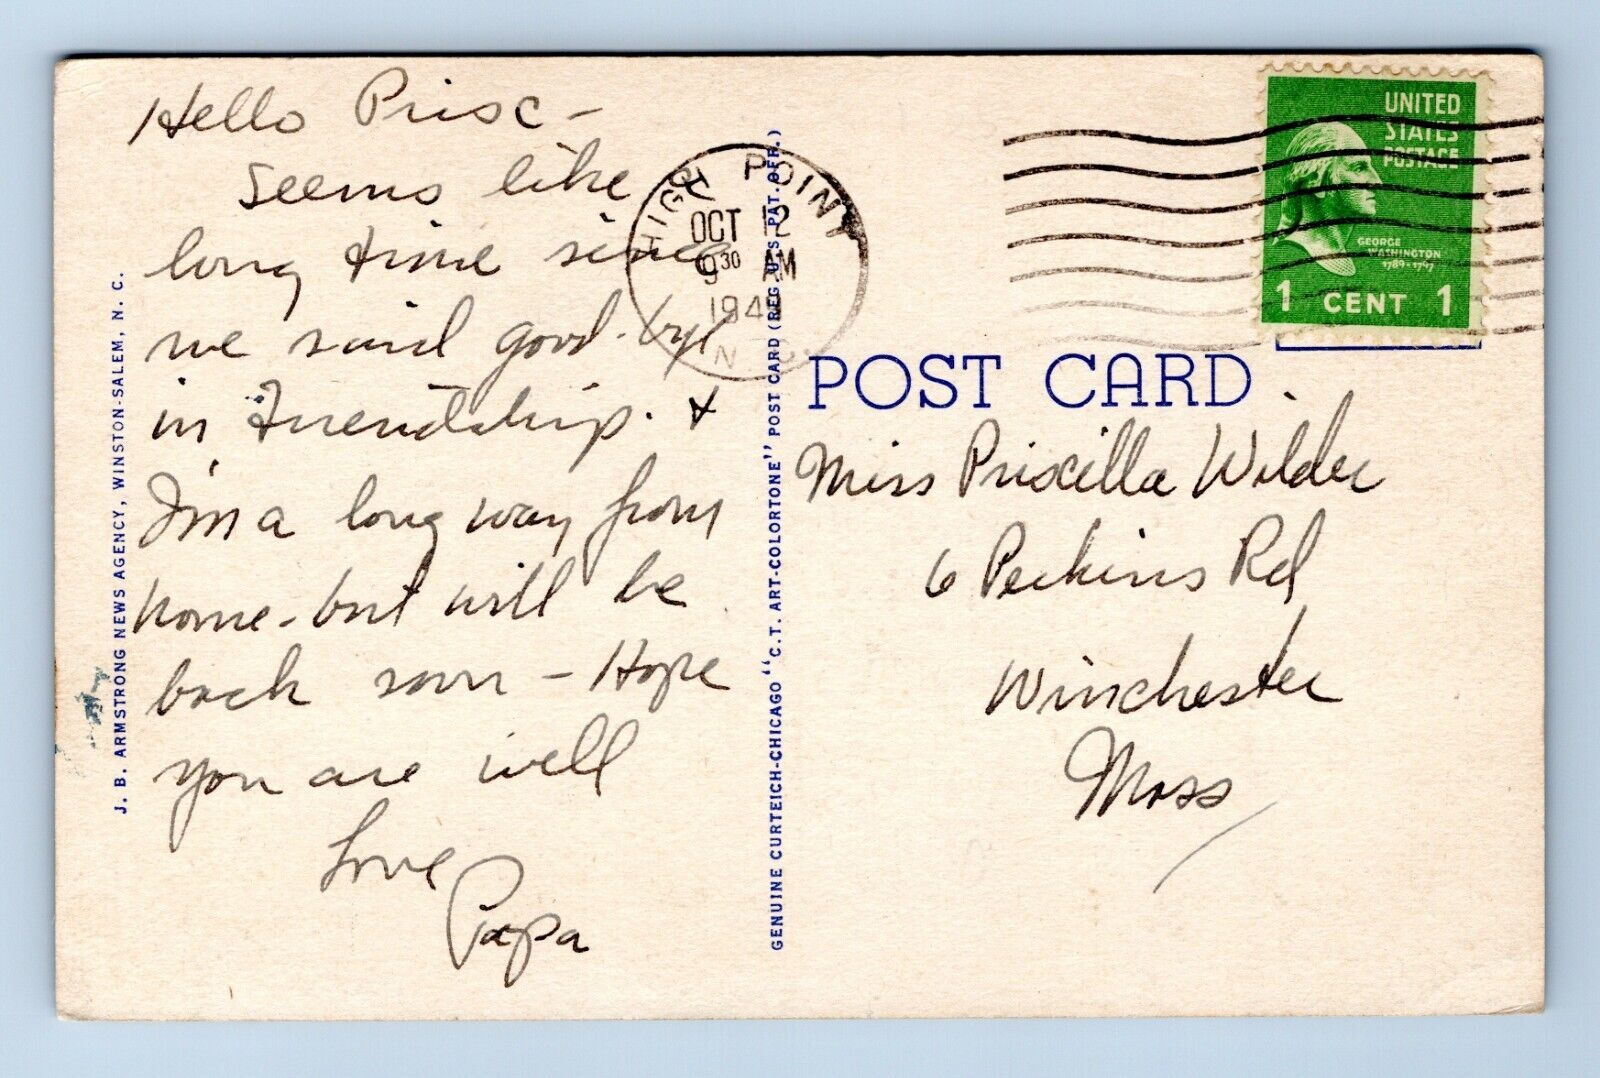 Hello Prisc -
Seems like
long time since
we said good-bye
in Friendship. &
I'm a long way from
home - but will be
back soon - Hope
you are well
Love
Papa
J. B. ARMSTRONG NEWS AGENCY, WINSTON-SALEM, N. C.
GENUINE CURTEICH-CHICAGO "C.T. ART-COLORTONE" POST CARD (REG. U.S. PAT. OFF.)
HIGH POINT
OCT 12
9 30 AM
1949
N. C.
UNITED
STATES
POSTAGE
GEORGE
WASHINGTON
1789-1797
1 CENT 1
POST CARD
Miss Priscilla Wilder
6 Perkins Rd
Winchester
Mass